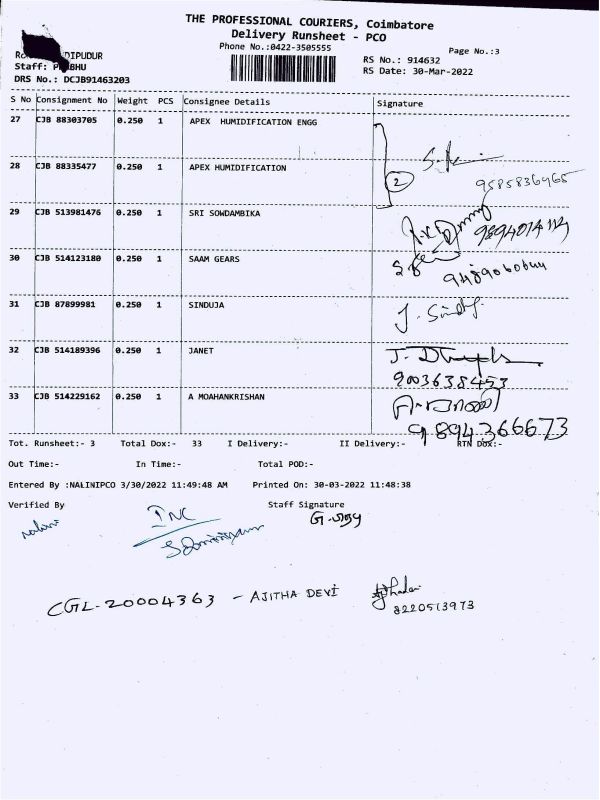 THE PROFESSIONAL COURIERS, Coimbatore
Delivery Runsheet - PCO
Phone No.:0422-3505555
Page No.:3
DIPUDUR
RS No.: 914632
Staff: P BHU
RS Date: 30-Mar-2022
DRS No.: DCJB91463203
S No Consignment No Weight PCS Consignee Details Signature
27 CJB 88303705 0.250 1 APEX HUMIDIFICATION ENGG
28 CJB 88335477 0.250 1 APEX HUMIDIFICATION
2
9585836965
29 CJB 513981476 0.250 1 SRI SOWDAMBIKA
30 CJB 514123180 0.250 1 SAAM GEARS
31 CJB 87899981 0.250 1 SINDUJA
32 CJB 514189396 0.250 1 JANET
9003638453
33 CJB 514229162 0.250 1 A MOAHANKRISHAN
9894366673
Tot. Runsheet:- 3 Total Dox:- 33 I Delivery:- II Delivery:- RTN Dox:-
Out Time:- In Time:- Total POD:-
Entered By :NALINIPCO 3/30/2022 11:49:48 AM Printed On: 30-03-2022 11:48:38
Verified By Staff Signature
CGL-20004363 - AJITHA DEVI
8220513973